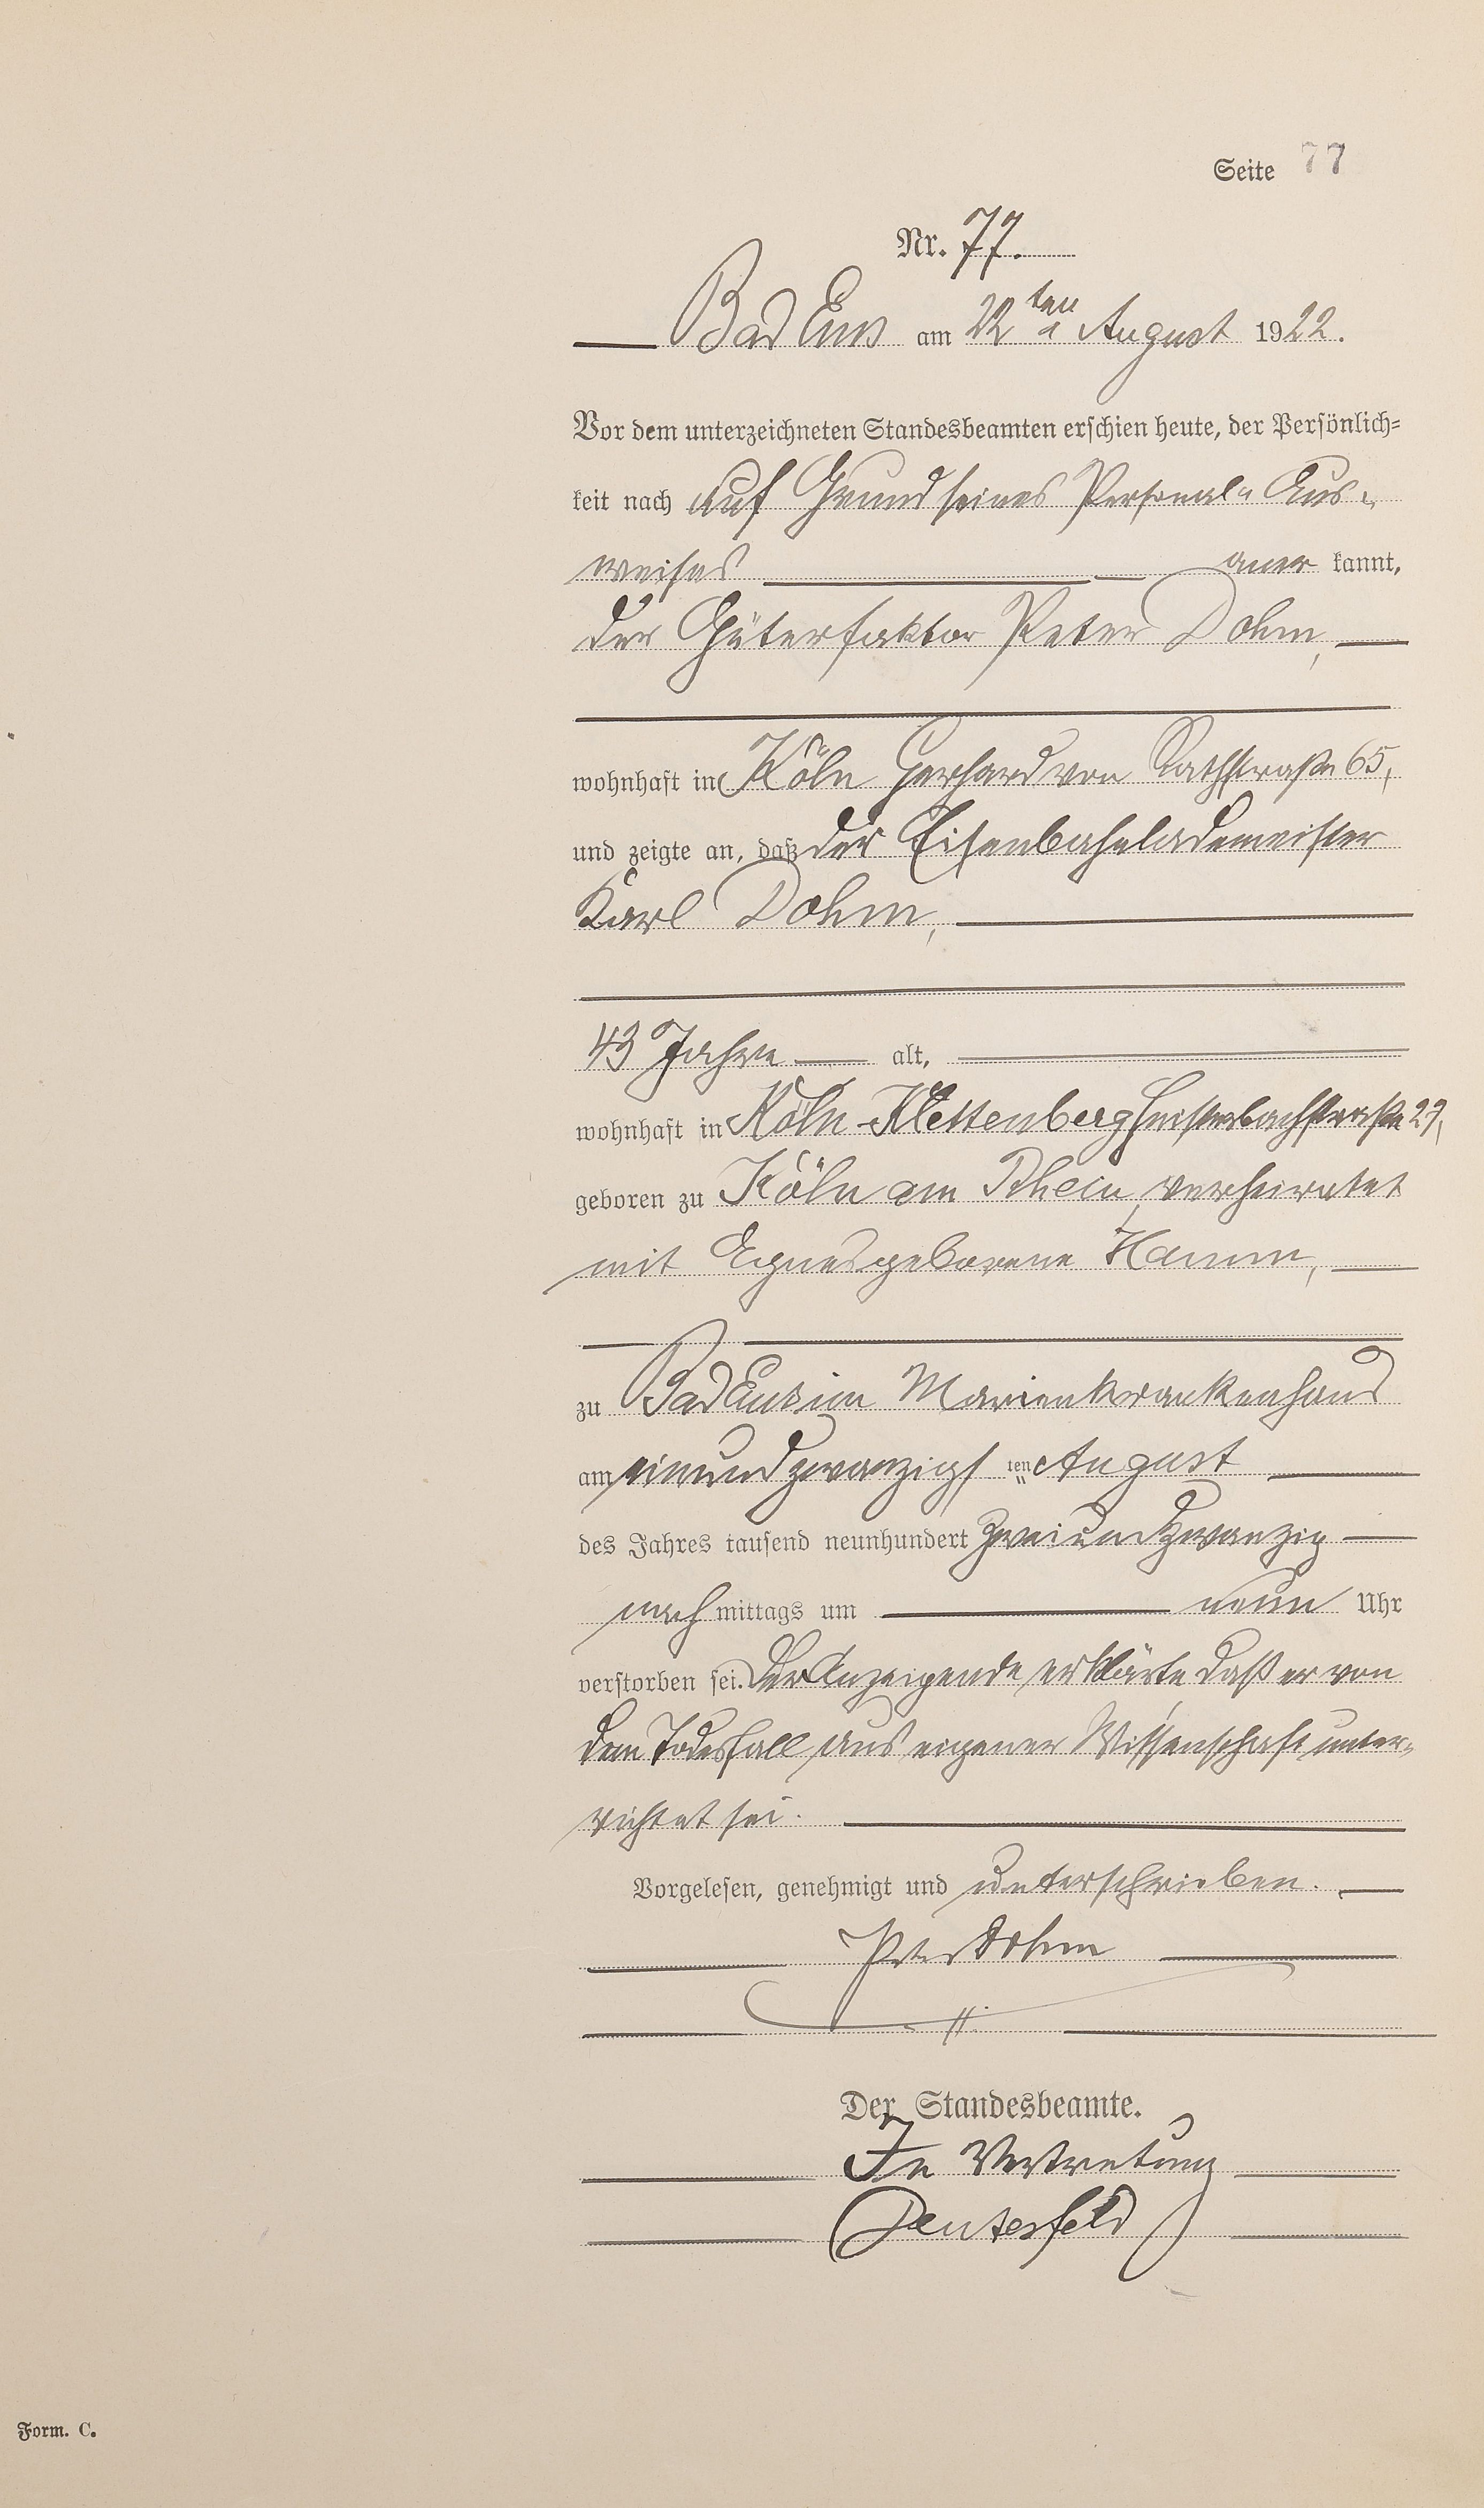 Seite 77
Nr. 77.
Bad Ems am 22ten August 1922.
Vor dem unterzeichneten Standesbeamten erschien heute, der Persönlich-
keit nach auf Grund seines Personal-Aus-
weises aner kannt,
der Güterfaktor Peter Dohm,
wohnhaft in Köln Gerhard von Rathstraße 65,
und zeigte an, daß der Eisenbahnlademeister
Karl Dohm,
43 Jahre alt,
wohnhaft in Köln-Klettenberg Heisterbachstraße 29,
geboren zu Köln am Rhein, verheiratet
mit Agnes geborene Hamm,
zu Bad Ems im Marienkrankenhaus
am einundzwanzigsten August
des Jahres tausend neunhundert zweiundzwanzig
nach mittags um neun Uhr
verstorben sei. Der Anzeigende erklärte daß er von
dem Todesfall aus eigener Wissenschaft unter-
richtet sei.
Vorgelesen, genehmigt und unterschrieben.
Peter Dohm
Der Standesbeamte.
In Vertretung
Form. C.